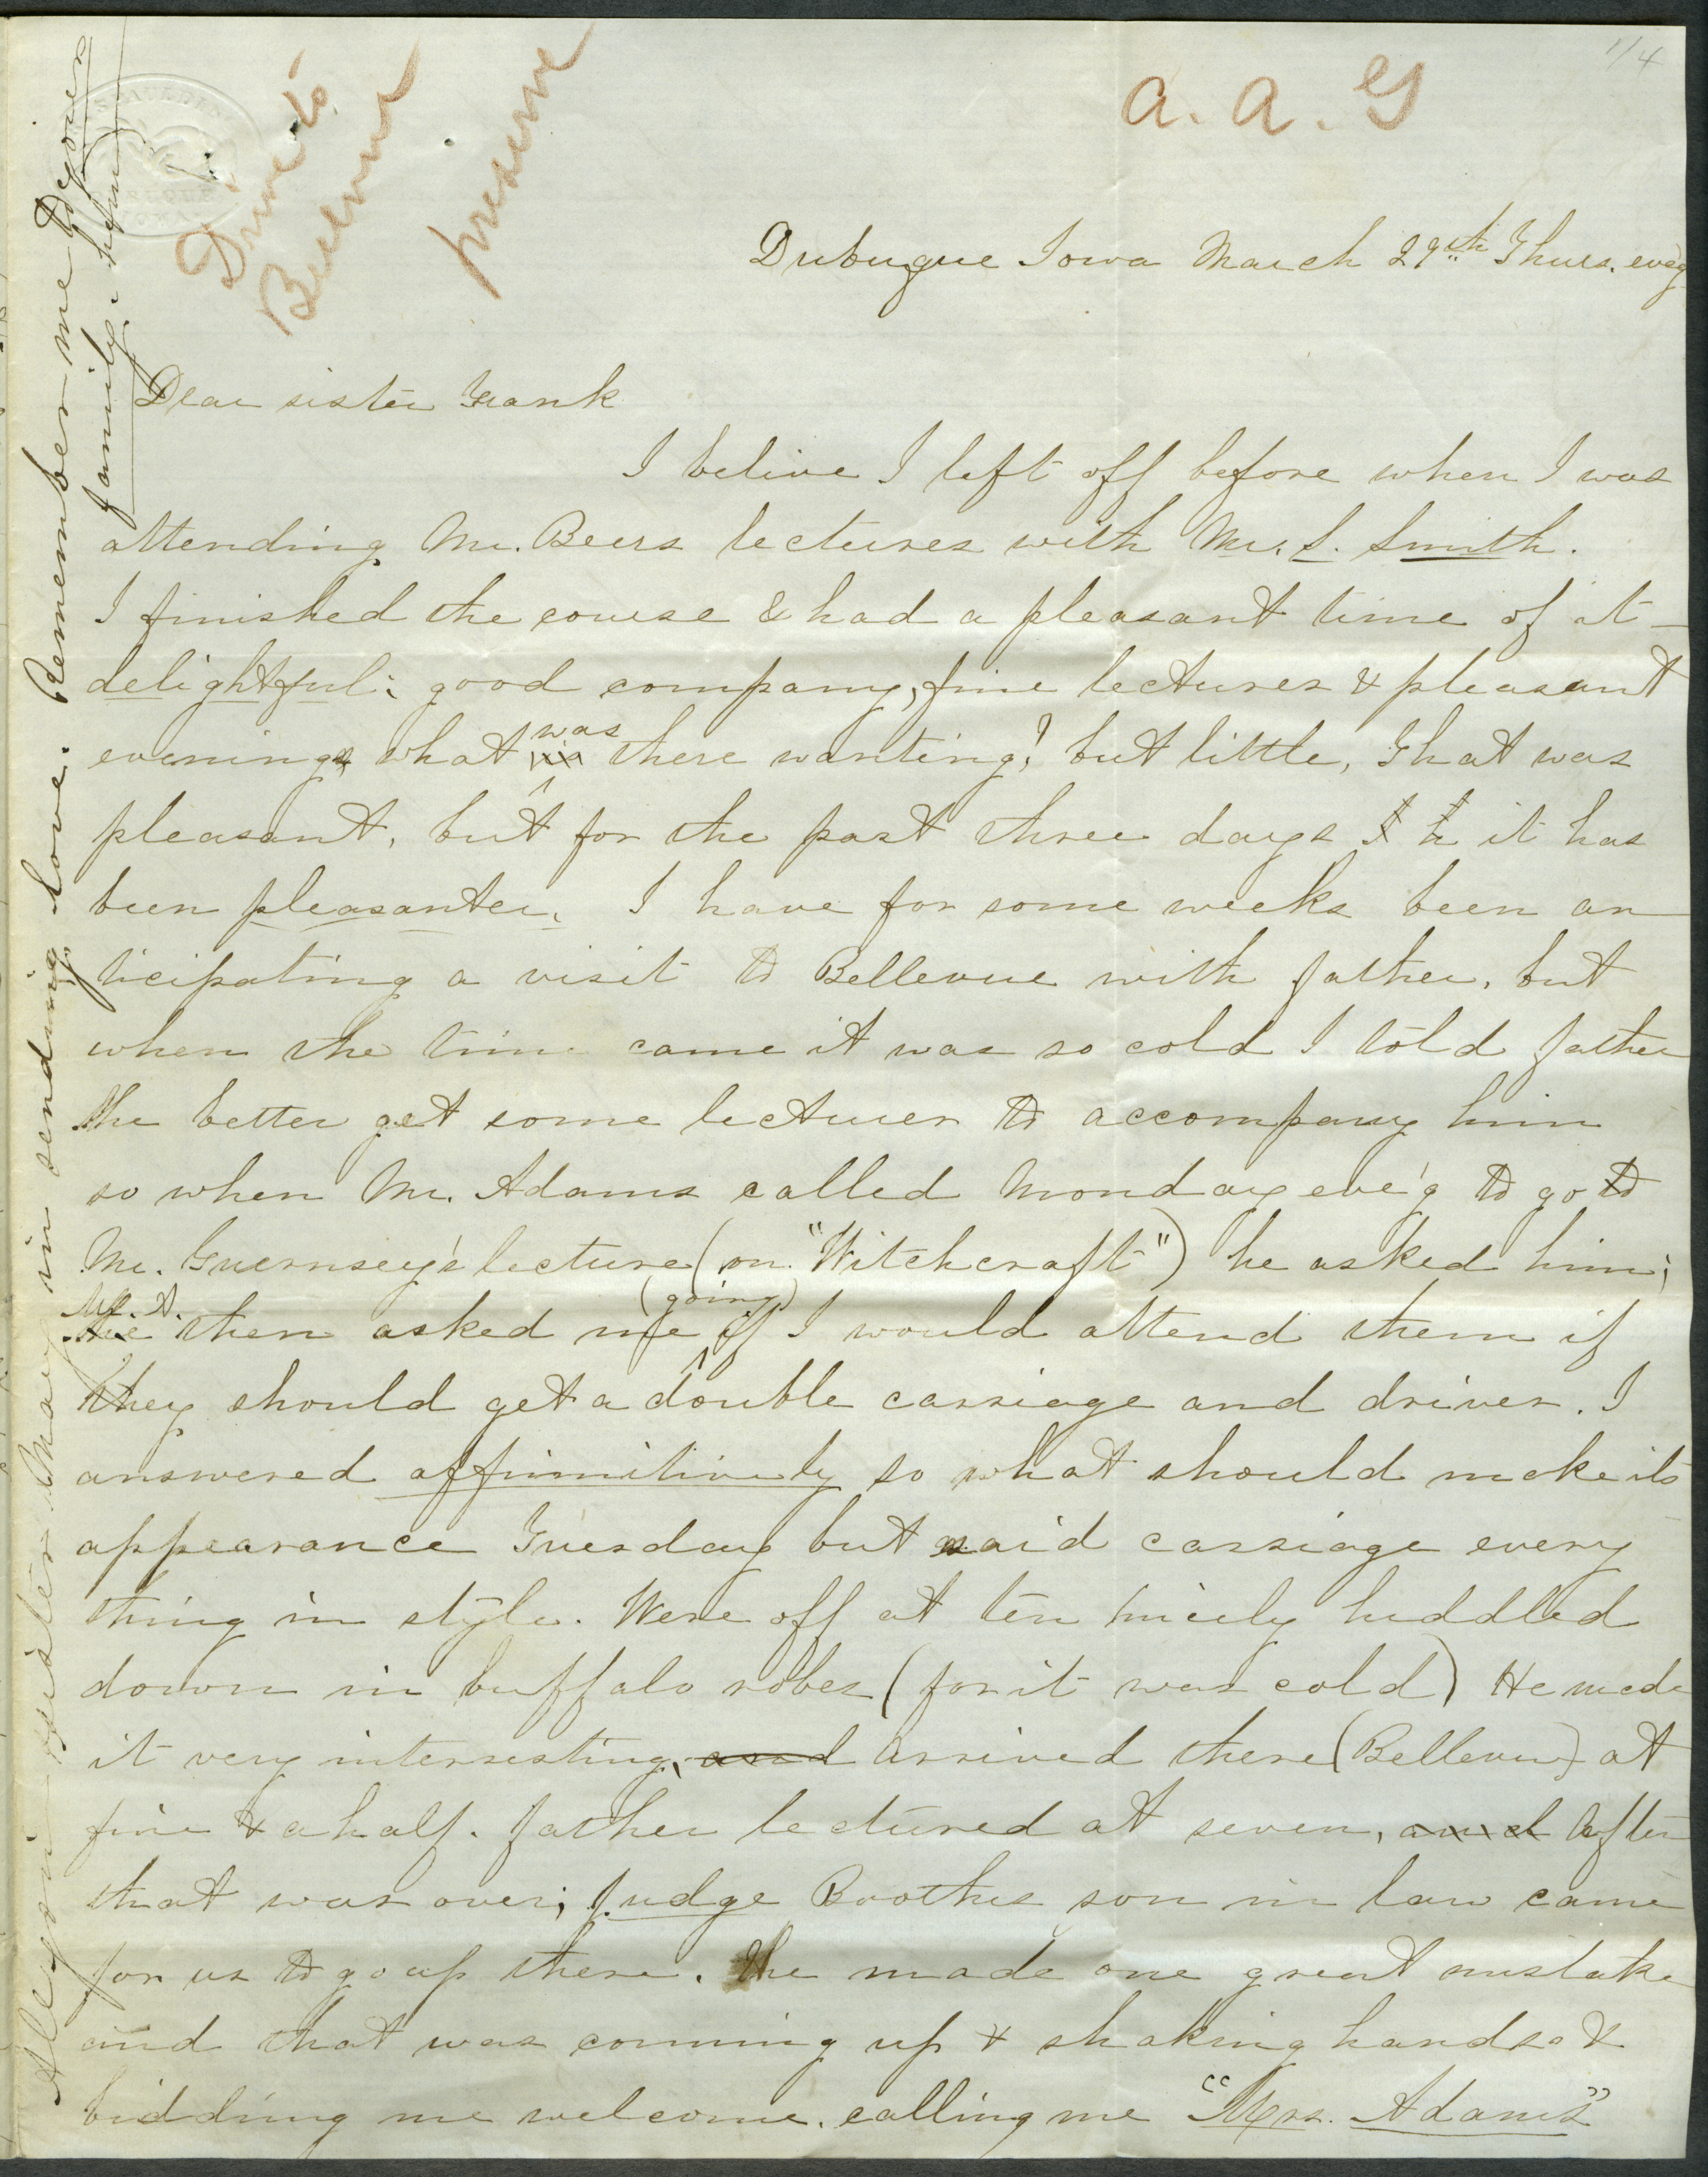 1/4
a. a. G
Drive to
Bellevue
preserve
Dubuque Iowa March 29th Thurs. eveg
Dear sister Frank
I belive I left off before when I was
attending Mr. Beers lectures with Mr. S. Smith.
I finished the course & had a pleasant time of it –
delightful; good company, fine lectures & pleasant
evenings, what was there wanting? but little, That was
pleasant, but for the past three days it has
been pleasanter. I have for some weeks been an
ticipating a visit to Bellevue with father, but
when the time came it was so cold I told father
he better get some lecturer to accompany him
so when Mr. Adams called Monday eve'g to go to
Mr. Guernsey's lecture (on "Witchcraft") he asked him;
Mr. A. then asked me (going) if I would attend them if
they should get a double carriage and driver. I
answered affirmitively so what should make its
appearance Tuesday but said carriage every
thing in style. Were off at ten nicely huddled
down in buffalo robes (for it was cold) He made
it very interresting, and arrived there (Bellevue) at
five & a half. father lectured at seven, and After
that was over; Judge Boothes son in law came
for us to go up there. He made one great mistake
and that was comming up & shaking hands &
bidding me welcome, calling me "Mrs. Adams"
sister Mary in sending love. Remember me to your
family.